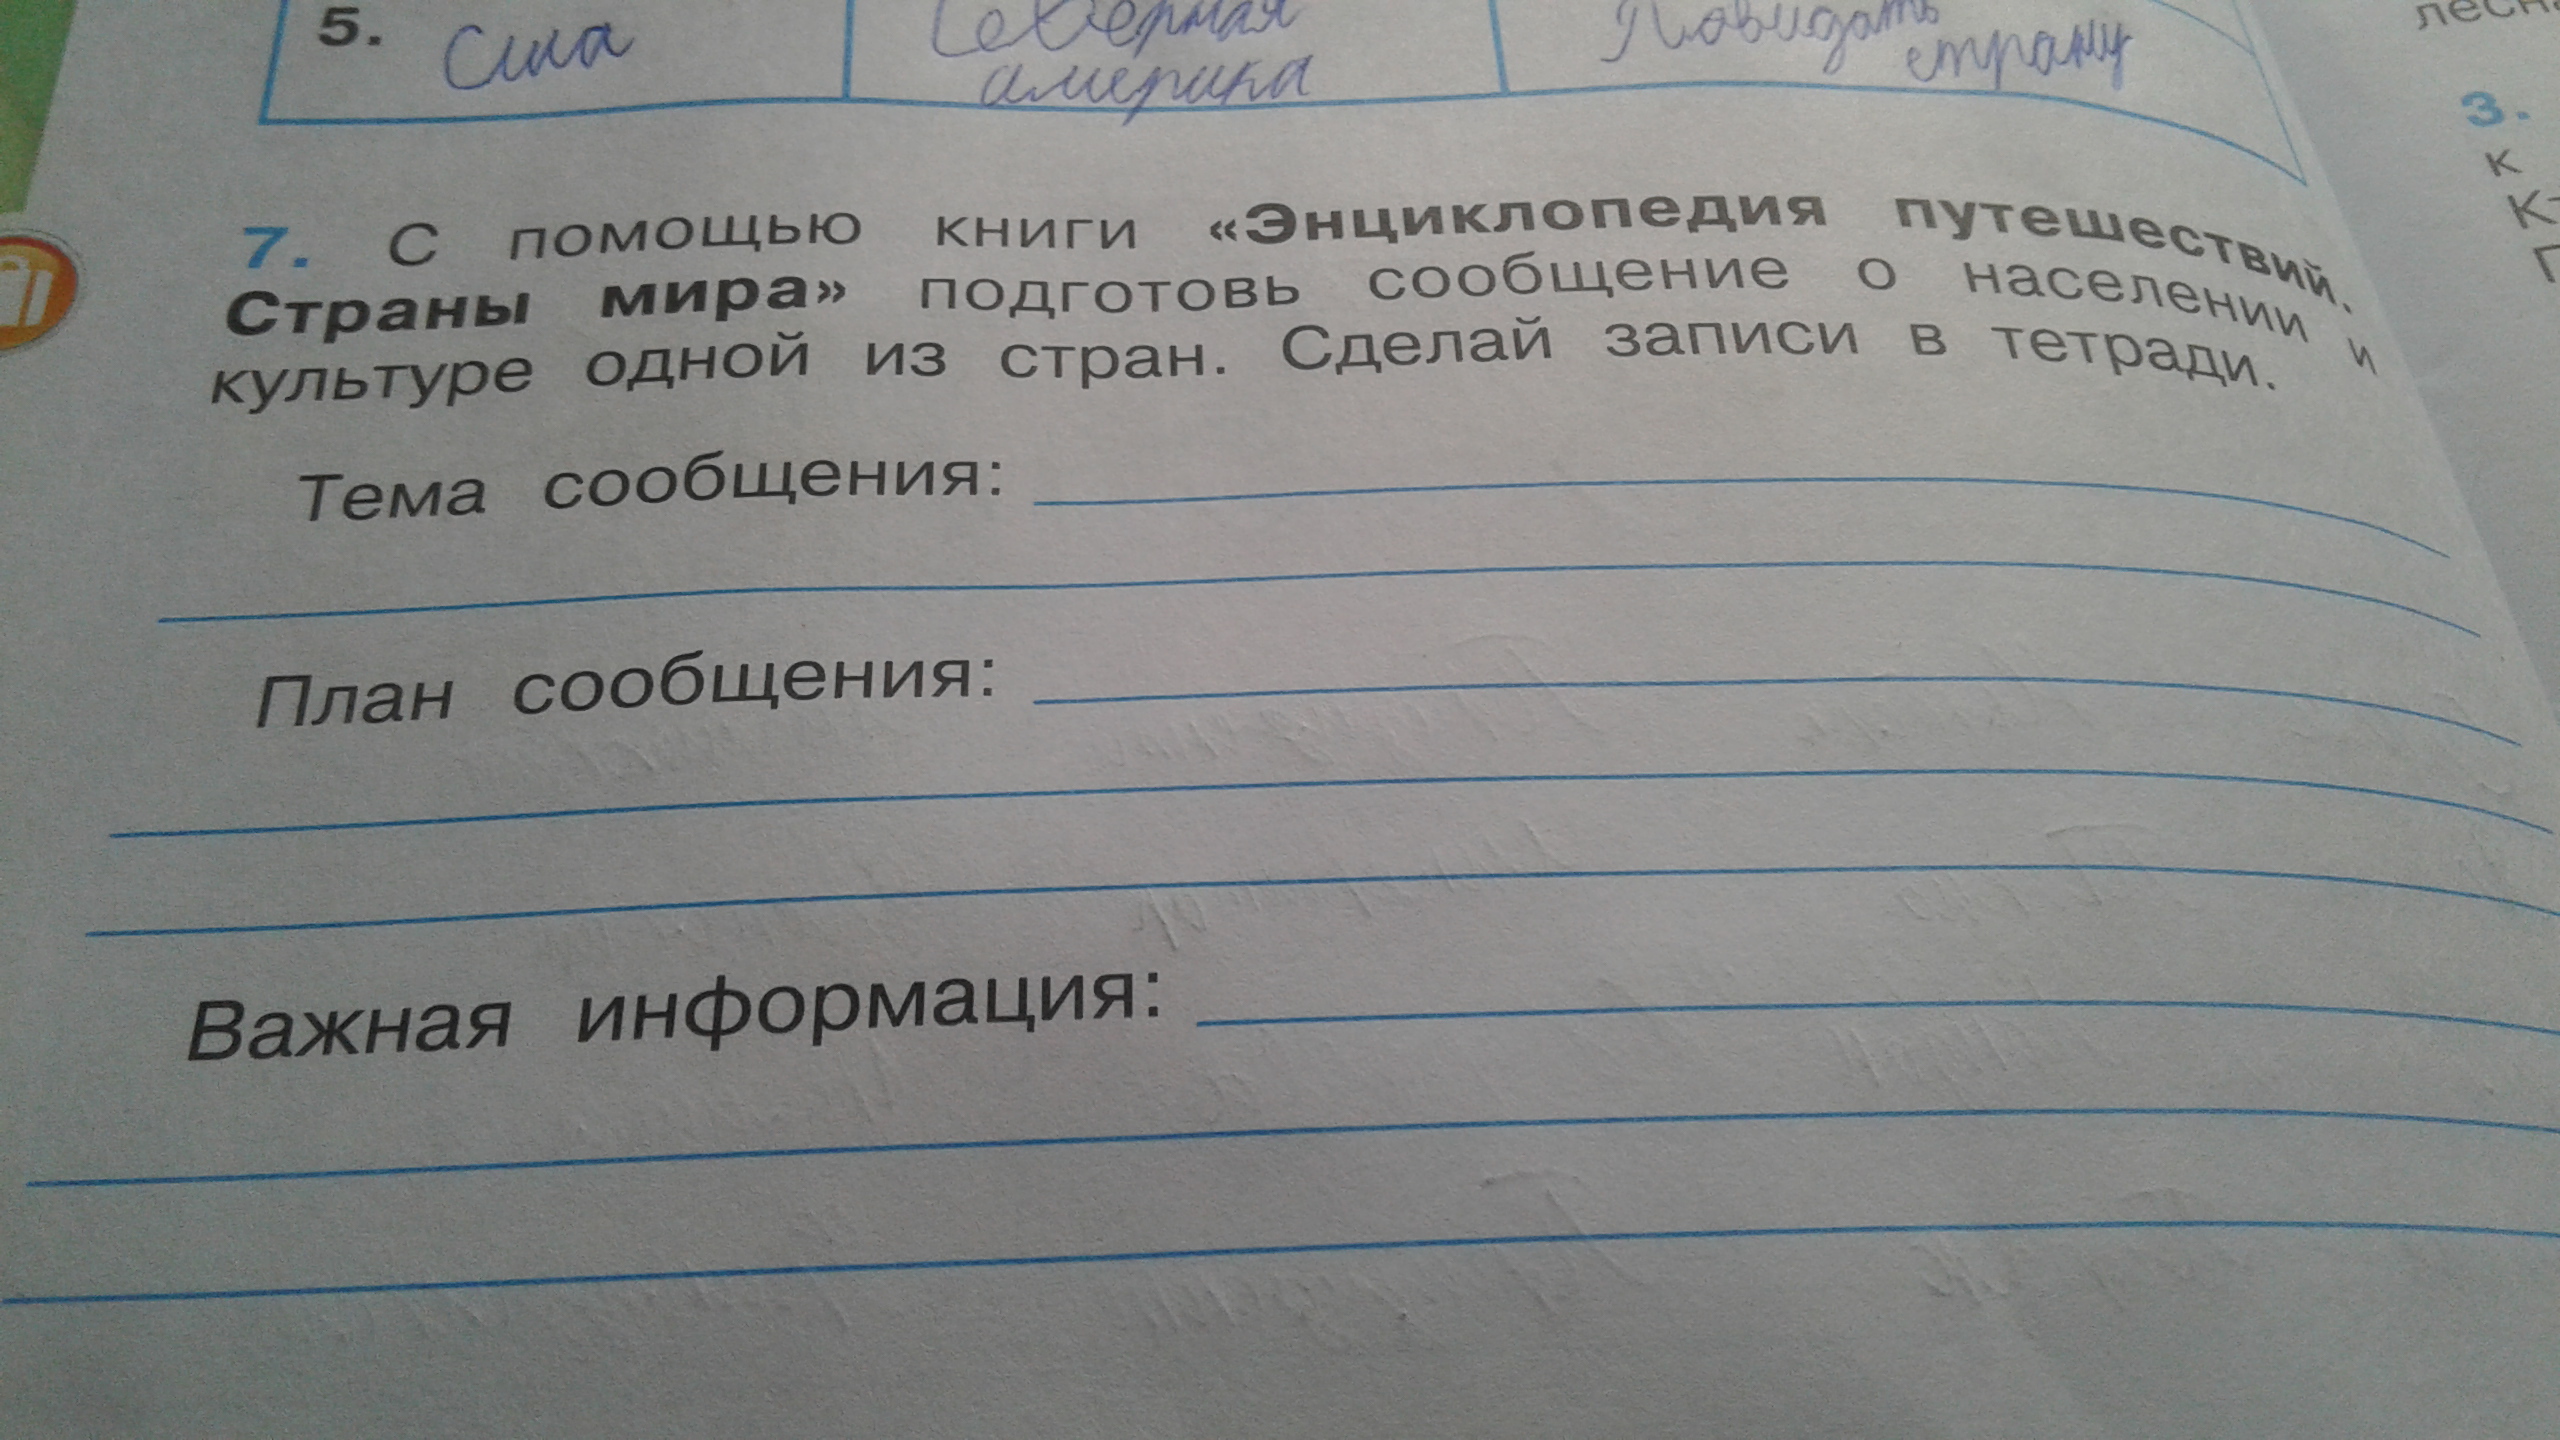 5. Сша
Северная
америка
Повидать
страну
лесн
3.
к
7. С помощью книги «Энциклопедия путешествий.
Страны мира» подготовь сообщение о населении и
культуре одной из стран. Сделай записи в тетради.
Тема сообщения:
План сообщения:
Важная информация: